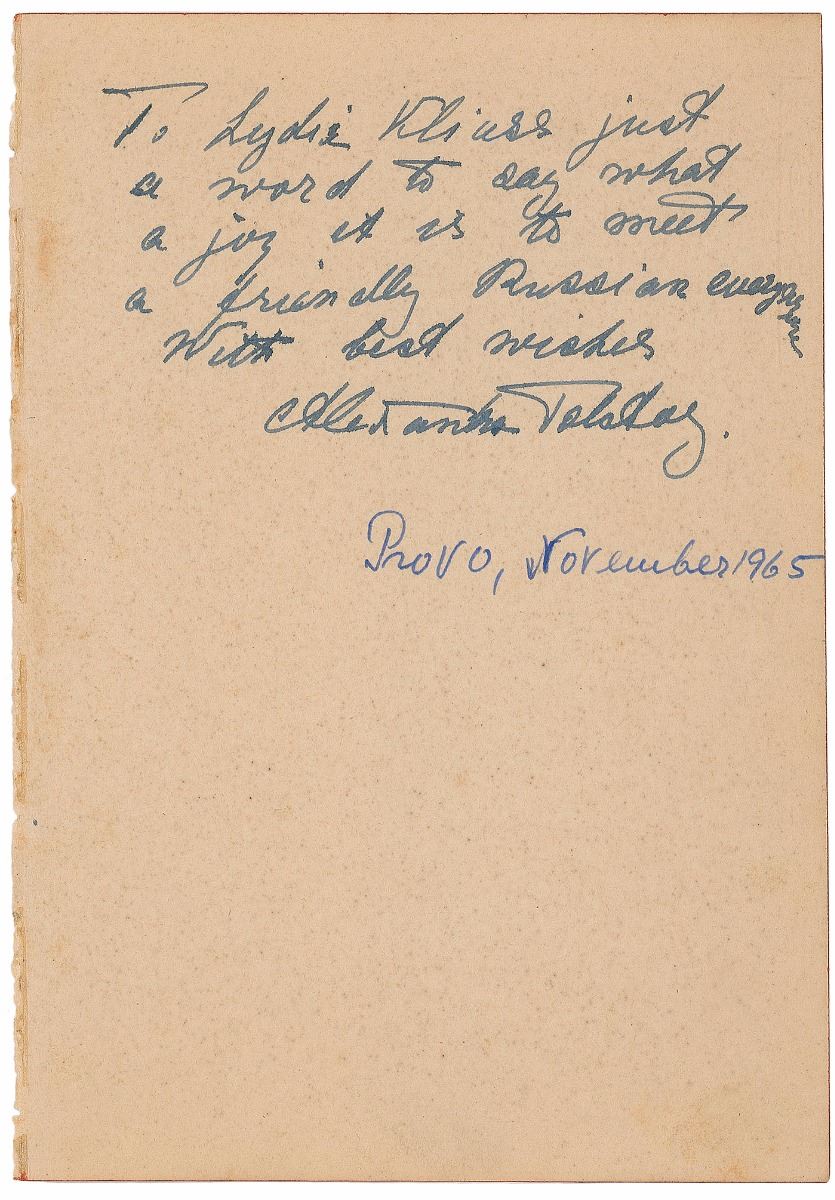 To Lydie Kliass just
a word to say what
a joy it is to meet
a friendly Russian everywhere
With best wishes
Alexandra Tolstoy.
Provo, November 1965